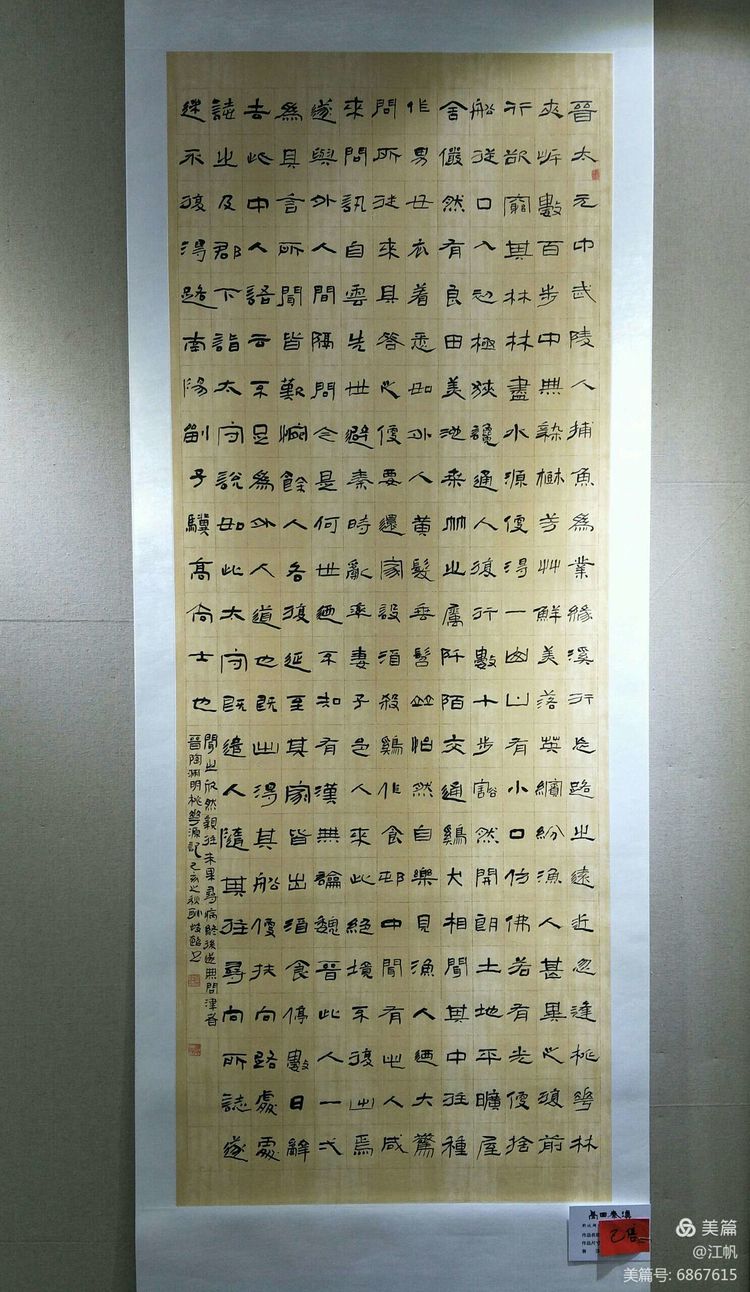 晉太元中武陵人捕魚為業緣溪行忘路之遠近忽逢桃華林
夾岸數百步中無雜樹芳艸鮮美落英繽紛漁人甚異之復前
行欲窮其林林盡水源便得一山山有小口仿佛若有光便捨
船從口入初極狹纔通人復行數十步豁然開朗土地平曠屋
舍儼然有良田美池桑竹之屬阡陌交通鷄犬相聞其中往種
作男女衣着悉如外人黃髮垂髫並怡然自樂見漁人迺大驚
問所從來具答之便要還家設酒殺鷄作食邨中聞有此人咸
來問訊自雲先世避秦時亂率妻子邑人來此絕境不復出焉
遂與外人間隔問今是何世迺不知有漢無論魏晉此人一弌
為具言所聞皆歎惋餘人各復延至其家皆出酒食停數日辭
去此中人語云不足為外人道也既出得其船便扶向路處處
誌之及郡下詣太守說如此太守既遣人隨其往尋向所誌遂
迷不復得路南陽劉子驥高尚士也
聞之欣然親往未果尋病終後遂無問津者
晉陶淵明桃華源記己亥之秋
已售
美篇
@江帆
美篇号: 6867615